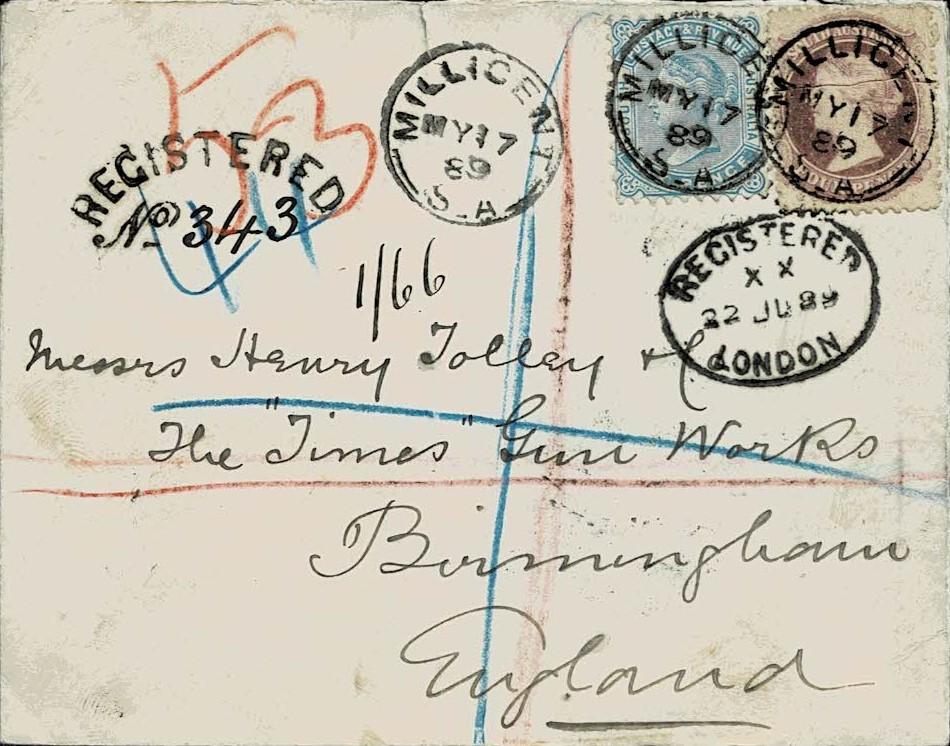 53
REGISTERED
No 343
MILLICENT
MY 17
89
S.A
MILLICENT
MY 17
89
S.A
MILLICENT
MY 17
89
S.A
REGISTERED
X X
22 JU 89
LONDON
1/66
Messrs Henry Tolley & Co
The "Times" Gun Works
Birmingham
England